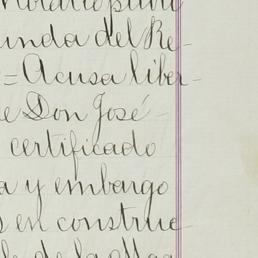 unda del Re-
= Acusa liber-
e Don José
certificado
a y embargo
s en construc
de la Mag